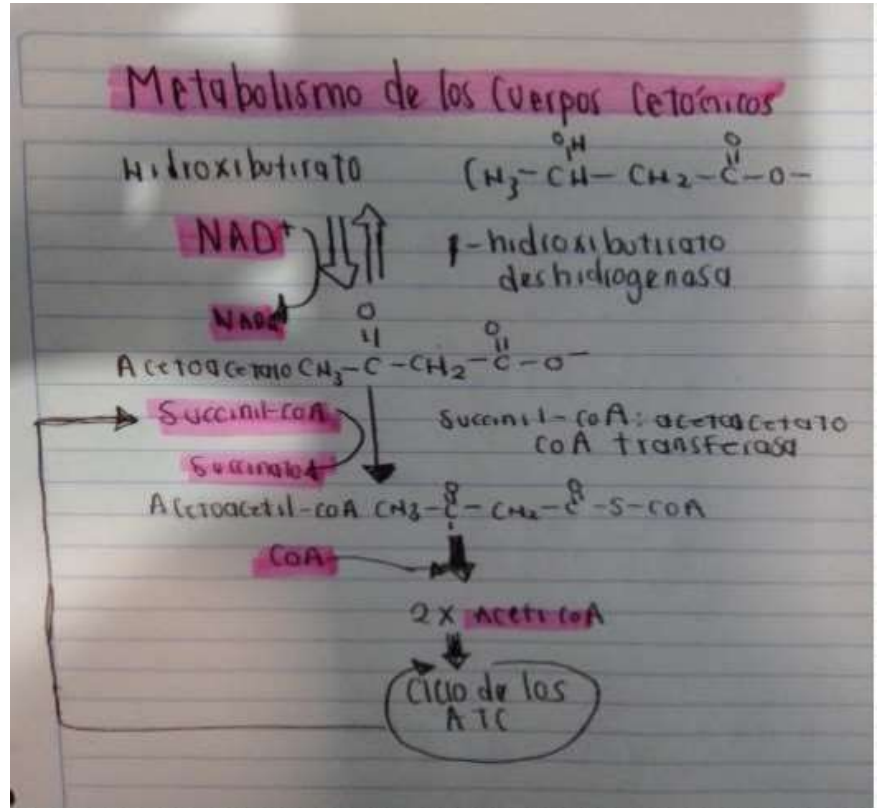 Metabolismo de los Cuerpos Cetónicos
Hidroxibutirato
OH O
CH3-CH-CH2-C-O-
NAD+
β-hidroxibutirato
deshidrogenasa
O O
Acetoacetato CH3-C-CH2-C-O-
Succinil-CoA
Succinil-CoA: acetoacetato
CoA transferasa
Succinato
O O
Acetoacetil-CoA CH3-C-CH2-C-S-COA
CoA
2x Acetil CoA
Ciclo de los
ATC